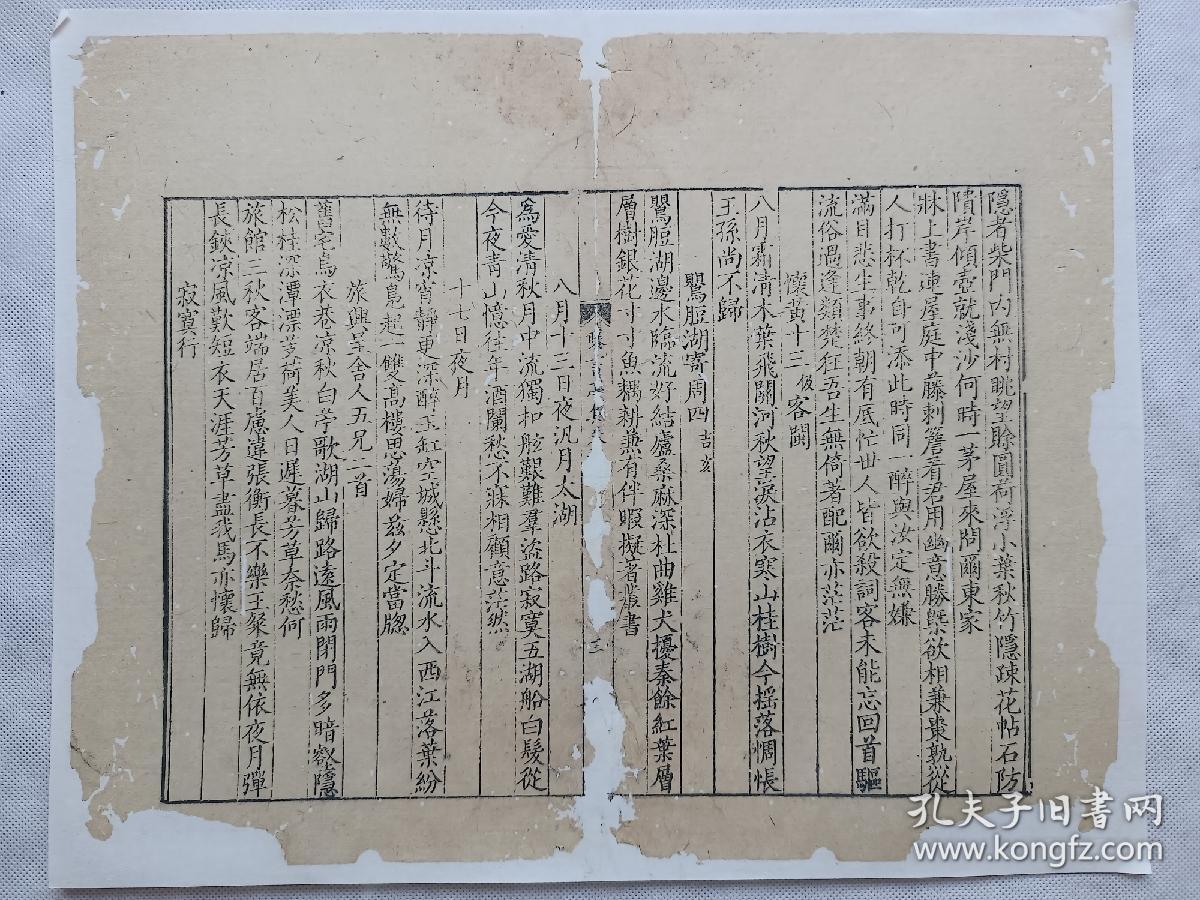 隱者柴門內無村眺望賒圓荷浮小葉秋竹隱疎花帖石防
隤岸傾壺就淺沙何時一茅屋來問爾東家
牀上書連屋庭中藤刺簷看君用幽意勝槩欲相兼棗熟從
人打杯乾自可添此時同一醉與汝定無嫌
滿目悲生事終朝有底忙世人皆欲殺詞客未能忘回首驅
流俗遇逢類楚狂吾生無倚著配爾亦茫茫
懷黃十三客閩
八月霜清木葉飛關河秋望淚沾衣寒山桂樹今摇落惆悵
王孫尚不歸
鸎脰湖寄周四吉亥
鸎脰湖邊水臨流好結廬桑麻深杜曲雞犬擾秦餘紅葉層
層樹銀花寸寸魚耦耕兼有伴暇擬著叢書
三
八月十三日夜汎月太湖
爲愛清秋月中流獨扣舷艱難羣盜路寂寞五湖船白髮從
今夜青山憶往年酒闌愁不寐相顧意茫然
十七日夜月
待月凉宵靜更深醉玉缸空城懸北斗流水入西江落葉紛
無數驚烏起一雙高樓思蕩婦茲夕定當牎
旅興呈舍人五兄二首
舊宅烏衣巷凉秋白苧歌湖山歸路遠風雨閉門多暗壑隱
松桂深潭漂芰荷美人日遲暮芳草奈愁何
旅館三秋客端居百慮違張衡長不樂王粲竟無依夜月彈
長鋏凉風歎短衣天涯芳草盡我馬亦懷歸
寂寞行
孔夫子旧书网
www.kongfz.com